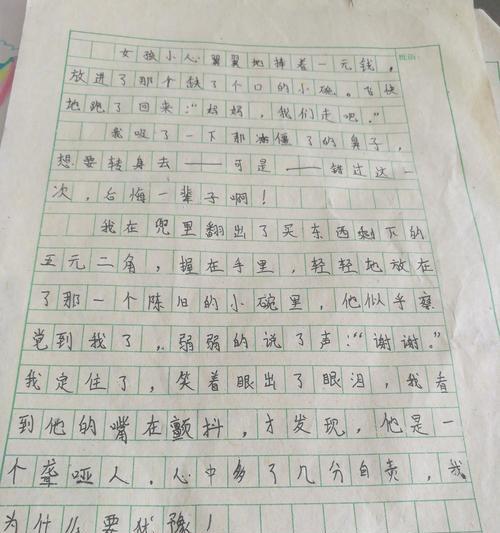 女孩小心翼翼地捧着一元钱，
放进了那个缺了个口的小碗。飞快
地跑了回来：“妈妈，我们走吧。”
我吸了一下那冻僵了的鼻子，
想要转身去——可是——错过这一
次，后悔一辈子啊！
我在兜里翻出了买东西剩下的
五元二角，握在手里，轻轻地放在
了那一个陈旧的小碗里，他似乎察
觉到我了，弱弱的说了声：“谢谢。”
我定住了，笑着眼出了眼泪，我看
到他的嘴在颤抖，才发现，他是一
个聋哑人，心中多了几分自责，我
为什么要犹豫！